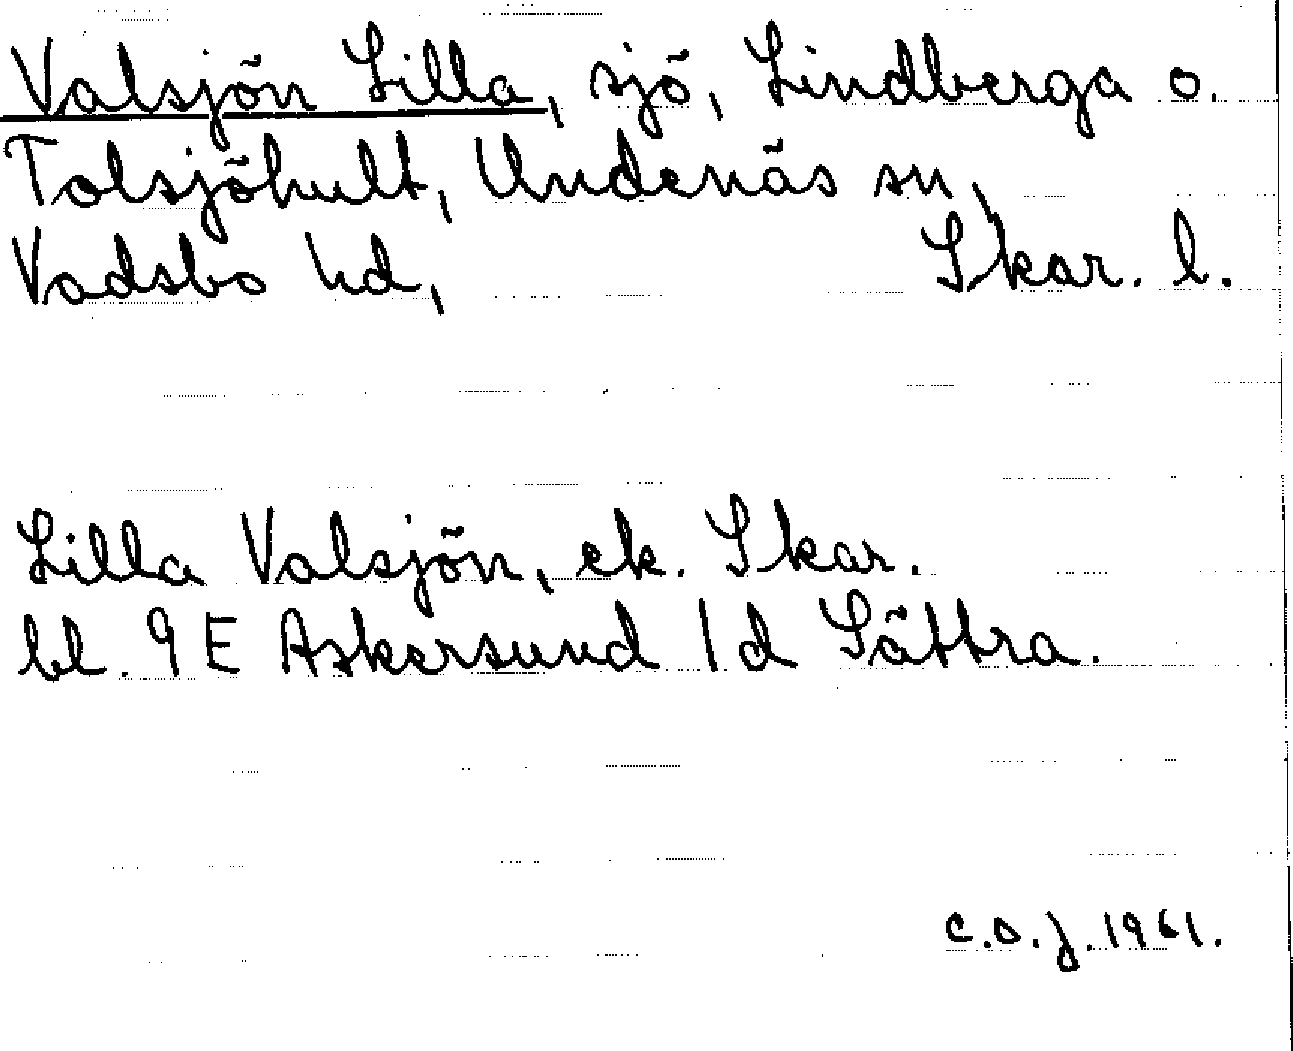 Valsjön Lilla, sjö, Lindberga o.
Tolsjöhult, Undenäs sn,
Vadsbo hd, Skar. l.
Lilla Valsjön, ek. Skar.
bl. 9 E Askersund 1 d Sättra.
C.O.J. 1961.